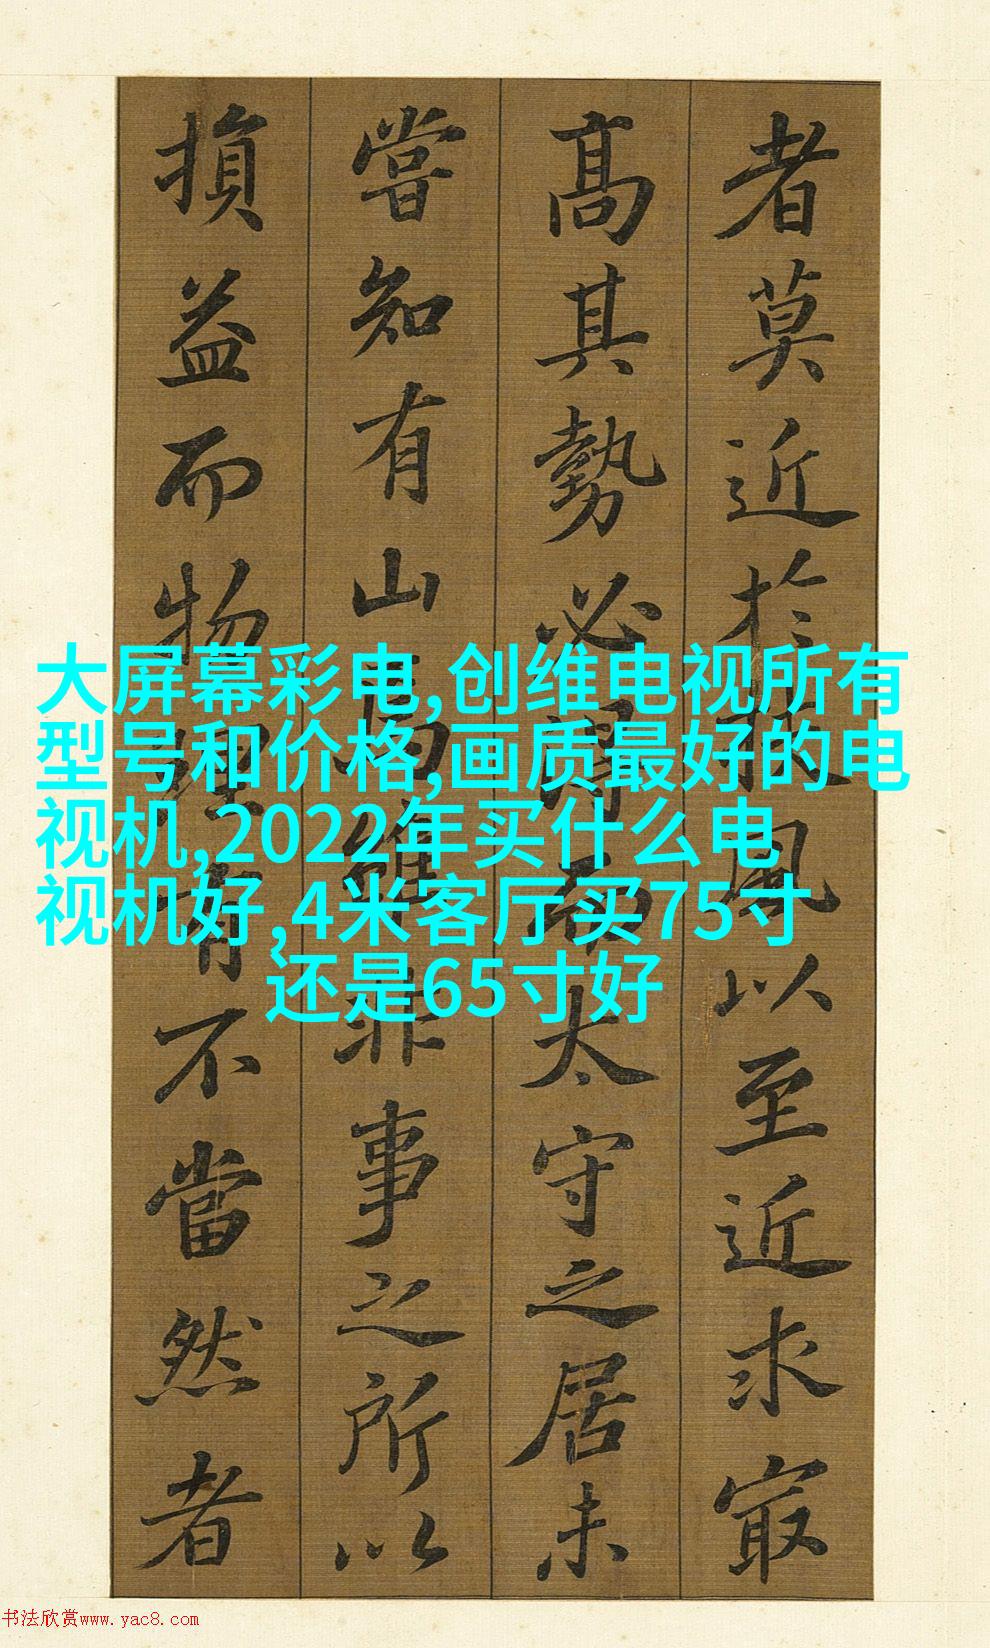 者莫近於扶風以至近求㝡
高其勢必得而太守之居未
嘗知有山焉雖非事之所以
損益而物理有不當然者
大屏幕彩电,创维电视所有
型号和价格,画质最好的电
视机,2022年买什么电
视机好,4米客厅买75寸
还是65寸好
书法欣赏www.yac8.com